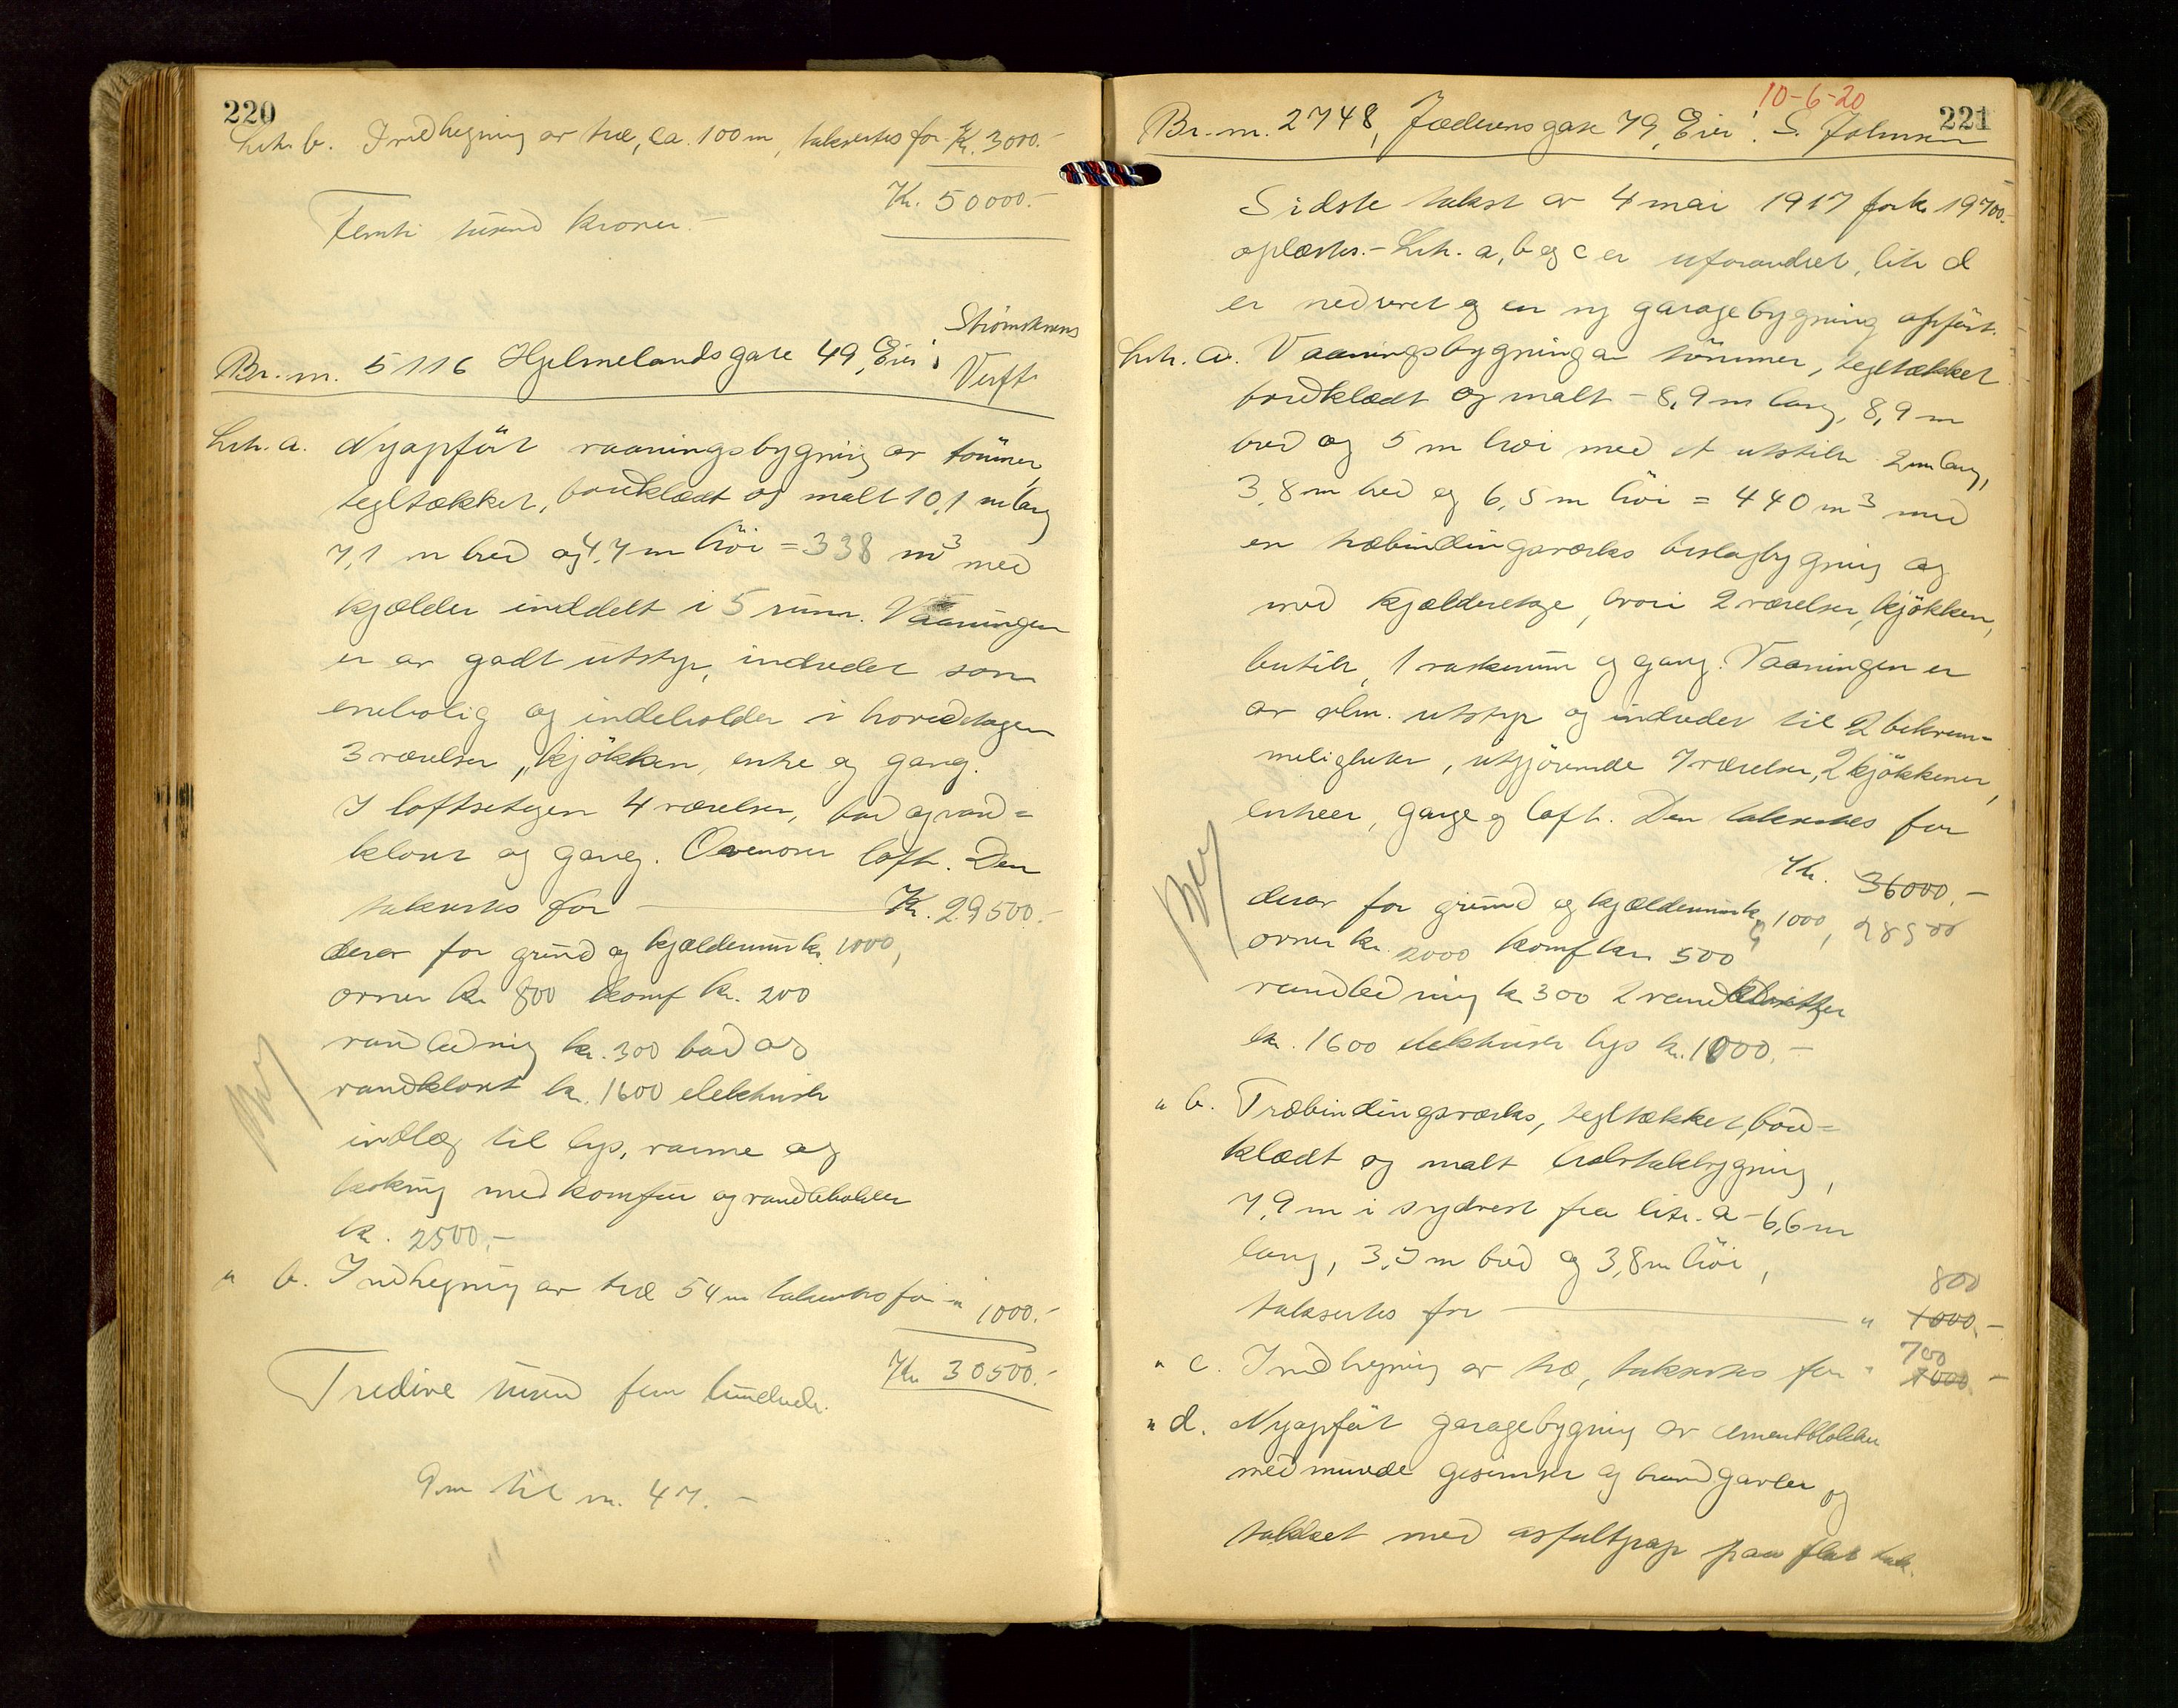 220
Litr. b. Indhegning av træ, ca. 100 m, taksertes for Kr. 3000.-
Kr. 50000.-
Femti tusend kroner.-
Br. nr. 5116 Hjelmelandsgate 49, Eier: Strømstens Verft
Litr. a. Nyopført vaaningsbygning av tømmer,
tegltækket, bordklædt og malt 10,1 m lang
7,1 m bred og 4,7 m høi = 338 m³ med
kjælder inddelt i 5 rum. Vaaningen
er av godt utstyr, indredet som
enebolig og indeholder i hovedetagen
3 værelser, kjøkken, entre og gang.
I loftsetagen 4 værelser, bad og vand=
kloset og gang. Ovenover loft. Den
taksertes for Kr. 29500.-
derav for grund og kjældermur kr. 1000,
ovner kr. 800 komf kr. 200
vandledning kr. 300 bad og
vandkloset kr. 1600 elektrisk
indlæg til lys, varme og
kokning med komfur og vandbeholder
kr. 2500.-
" b. Indhegning av træ 54 m taksertes for " 1000.-
Kr 30500.-
Tredive tusend fem hundrede.
9 m til nr. 47.-
10-6-20
221
Br. nr. 2748, Jæderensgate 79, Eier: S. Johnsen
Sidste takst av 4 mai 1917 for kr. 19700.-
oplæstes.- Litr. a, b og c er uforandret, litr d
er nedrevet og en ny garagebygning opført.
Litr. a. Vaaningsbygning av tømmer, tegltækket
bordklædt og malt - 8,9 m lang, 8,9 m
bred og 5 m høi med et utstikk 2 m lang,
3,8 m bred og 6,5 m høi = 440 m³ med
en træbindingsverks bislagbygning og
med kjælderetage, hvori 2 værelser, kjøkken,
butik, 1 vaskerum og gang. Vaaningen er
av alm. utstyr og indredet til 2 bekvem=
meligheter, utgjørende 7 værelser, 2 kjøkkener,
entreer, gange og loft. Den taksertes for
Kr. 36000.-
derav for grund og kjældermur kr. 1000, 28500
ovner kr. 2000 komf kr. 500
vandledning kr 300 2 vandklosetter
kr. 1600 elektrisk lys kr. 1000.-
" b. Træbindingsværks, tegltækket, bord=
klædt og malt halvtakbygning,
7,9 m i sydvest fra litr. a - 6,6 m
lang, 3,5 m bred og 3,8 m høi,
800
taksertes for " 1000.-
700
" c. Indhegning av træ, taksertes for " 1000.-
" d. Nyopført garagebygning av cementblokker
med murede gesimser og brandgavler og
tækket med asfaltpap paa flat tak.